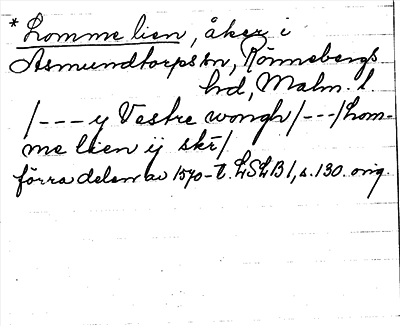 * Lomme lien, åker i
Asmundtorps sn, Rönnebergs
hd, Malm. l.
/--- y Vestre wongh/---/Lom-
me lien ij skr/
förra delen av 1570-t. LSLB 1, s. 130. orig.